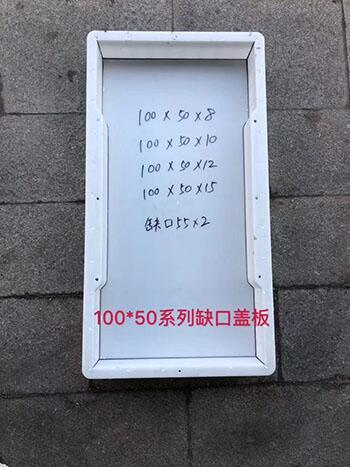 100×50×8
100×50×10
100×50×12
100×50×15
缺口55×2
100*50系列缺口盖板